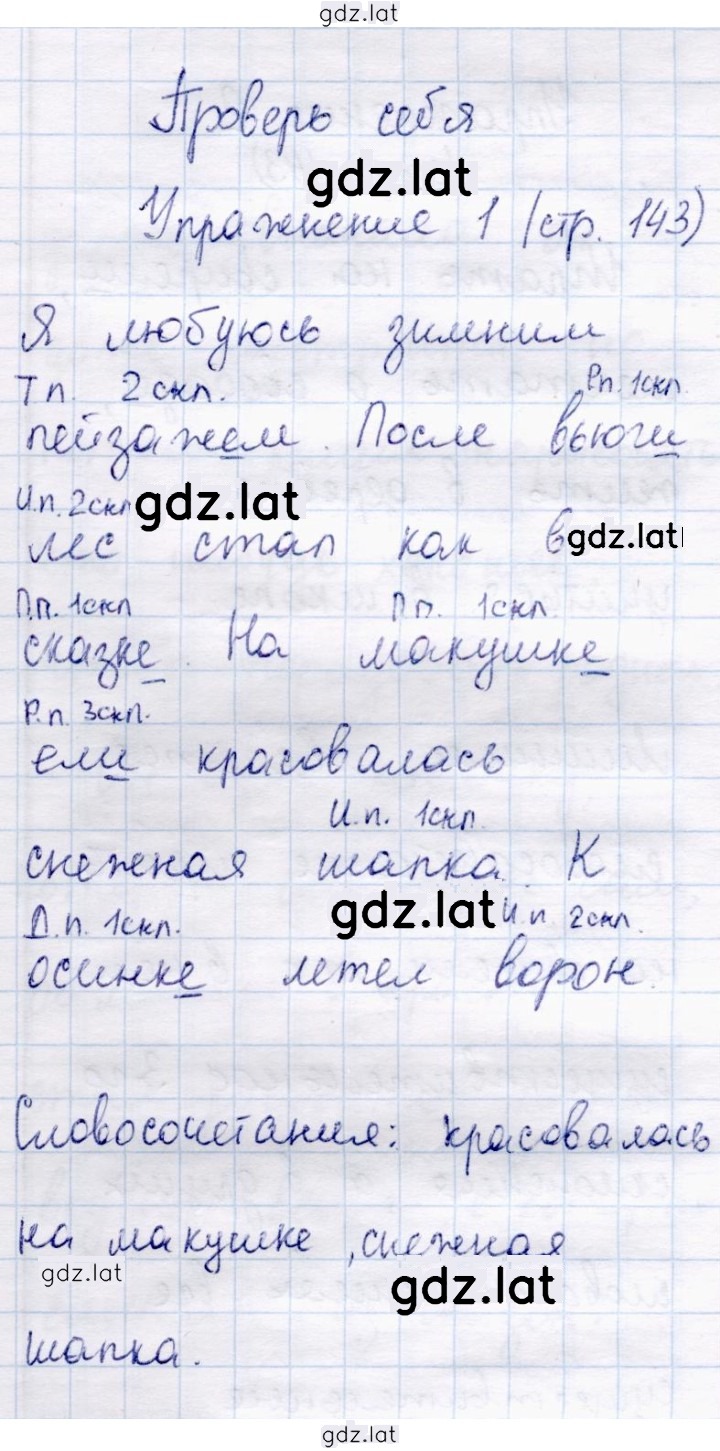 gdz.lat
Проверь себя
gdz.lat
Упражнение 1 (стр. 143)
Я любуюсь зимним
Тп. 2скл. Рп. 1скл.
пейзажем. После вьюги
И.п. 2скл gdz.lat
лес стал как в gdz.lat
П.п. 1скл П.п. 1скл.
сказке. На макушке
Р.п. 3скл.
ели красовалась
И.п. 1скл.
снежная шапка. К
Д.п. 1скл. gdz.lat И.п. 2скл.
осинке летел ворон.
Словосочетания: красовалась
на макушке, снежная
gdz.lat gdz.lat
шапка.
gdz.lat